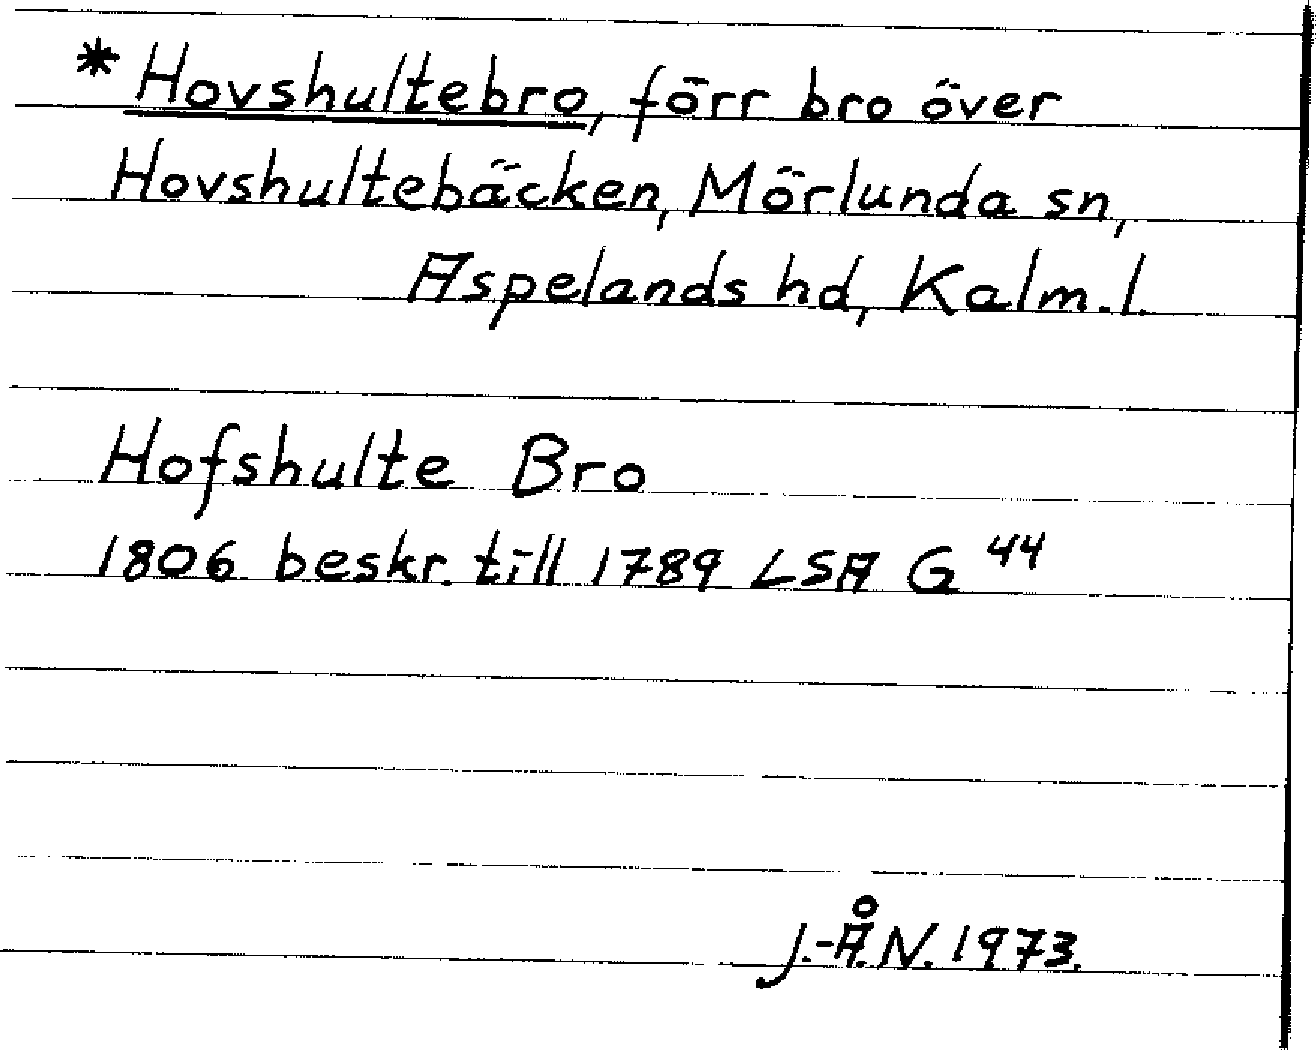 * Hovshultebro, förr bro över
Hovshultebäcken, Mörlunda sn,
Aspelands hd, Kalm. l.
Hofshulte Bro
1806 beskr. till 1789 LSA G 44
J.-Å.N. 1973.